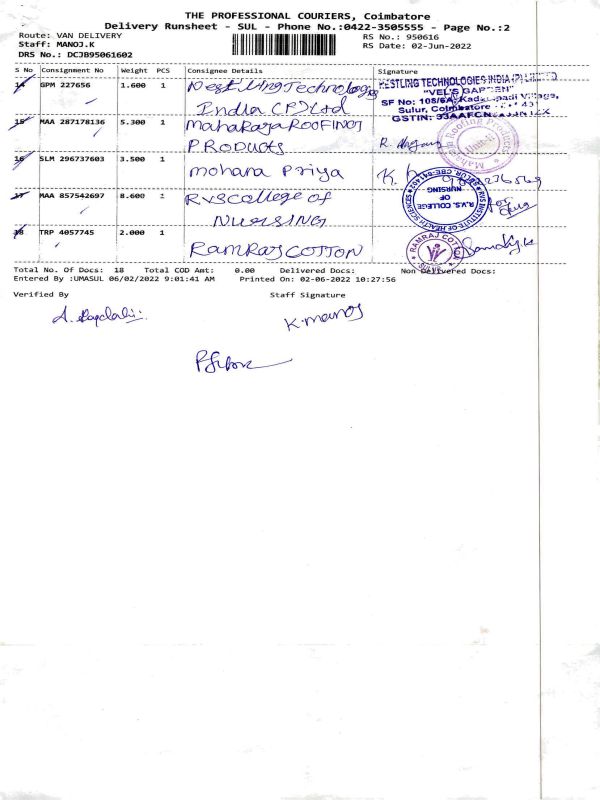 THE PROFESSIONAL COURIERS, Coimbatore
Delivery Runsheet - SUL - Phone No.:0422-3505555 - Page No.:2
Route: VAN DELIVERY RS No.: 950616
Staff: MANOJ.K RS Date: 02-Jun-2022
DRS No.: DCJB95061602
S No Consignment No Weight PCS Consignee Details Signature
14 GPM 227656 1.600 1 Nestling Technologies
India (P) Ltd
NESTLING TECHNOLOGIES INDIA (P) LIMITED
"VEL'S GARDEN"
SF No: 108/6A, Kadampadi Village,
Sulur, Coimbatore
GSTIN: 33AAFCN
15 MAA 287178136 5.300 1 Maharaja ROOFING
PRODUCTS
Maharaja Roofing Products
16 SLM 296737603 3.500 1 mohana Priya K.
17 MAA 857542697 8.600 1 RVS college of
NURSING
RVS INSTITUTE OF HEALTH SCIENCES
R.V.S. COLLEGE
OF
NURSING
18 TRP 4057745 2.000 1 RAMRAJ COTTON
RAMRAJ COTTON
Total No. Of Docs: 18 Total COD Amt: 0.00 Delivered Docs: Non Delivered Docs:
Entered By :UMASUL 06/02/2022 9:01:41 AM Printed On: 02-06-2022 10:27:56
Verified By Staff Signature
K.manoj